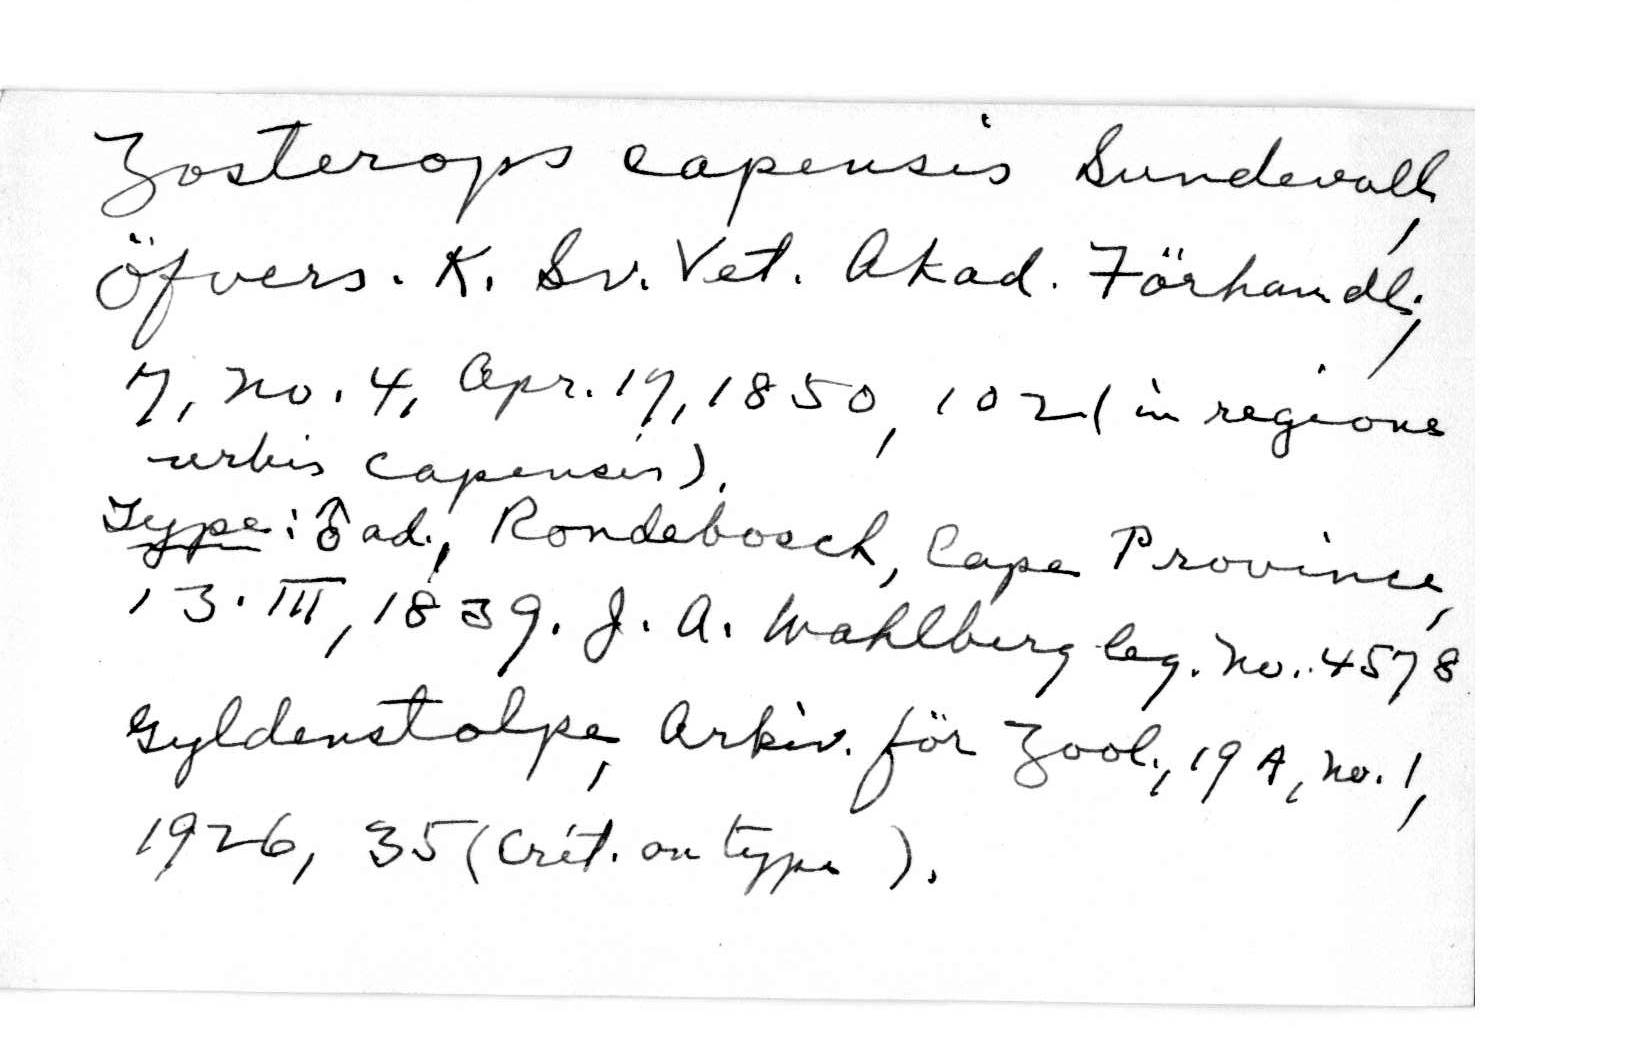 Zosterops capensis Sundevall,
Öfvers. K. Sv. Vet. Akad. Förhandl.,
7, no. 4, Apr. 17, 1850, 102 (in regione
urbis capensis).
Type: ♂ ad., Rondebosch, Cape Province,
13. III, 1839. J. A. Wahlberg leg. No. 4578
Gyldenstolpe, Arkiv. för Zool., 19 A, no. 1,
1926, 35 (Crit. on type ).